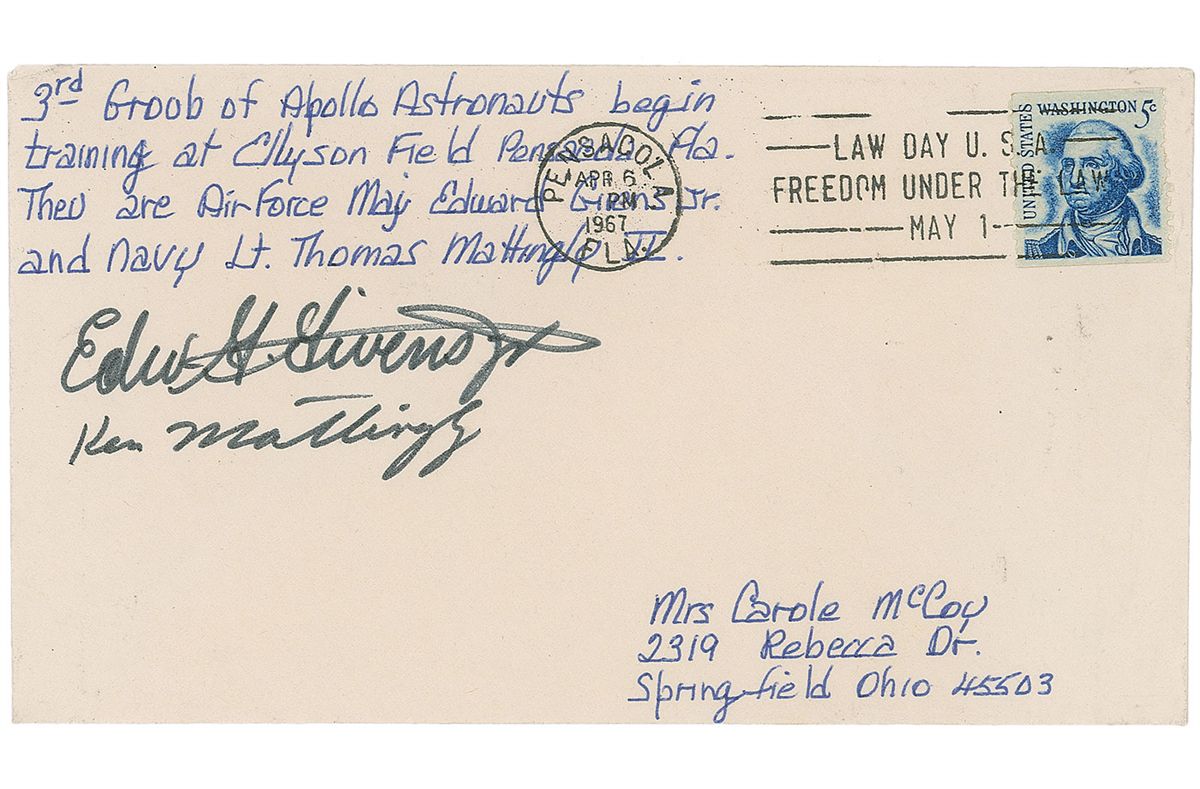 3rd Groob of Apollo Astronauts begin
training at Ellyson Field Pensacola Fla.
Theu are AirForce Maj Edward Givens Jr.
and Navy Lt. Thomas Mattingly II.
PENSACOLA
APR 6
PM
1967
FLA
LAW DAY U. S. A.
FREEDOM UNDER THE LAW
MAY 1
UNITED STATES
WASHINGTON 5c
Edw G. Givens Jr
Ken Mattingly
Mrs Carole McCoy
2319 Rebecca Dr.
Springfield Ohio 45503